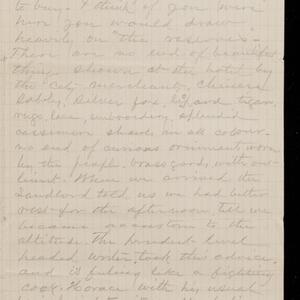 to buy. I think if you were
here you would draw
heavily on "the reserves".
There are no end of beautiful
things shown at the hotel by
the city merchants, Chinese
silver fox, leopard tiger,
rugs, lace, embroidery, splendid
shawls, in all colours
no end of curious ornament, worn
by the people. brass goods, with out
limit. When we arrived the
Landlord told us we had better
rest for the afternoon till we
became accustom to the
altitude. The prudent level
headed writer took the advice.
and is feeling like a fighting
cock. Horace with his usual